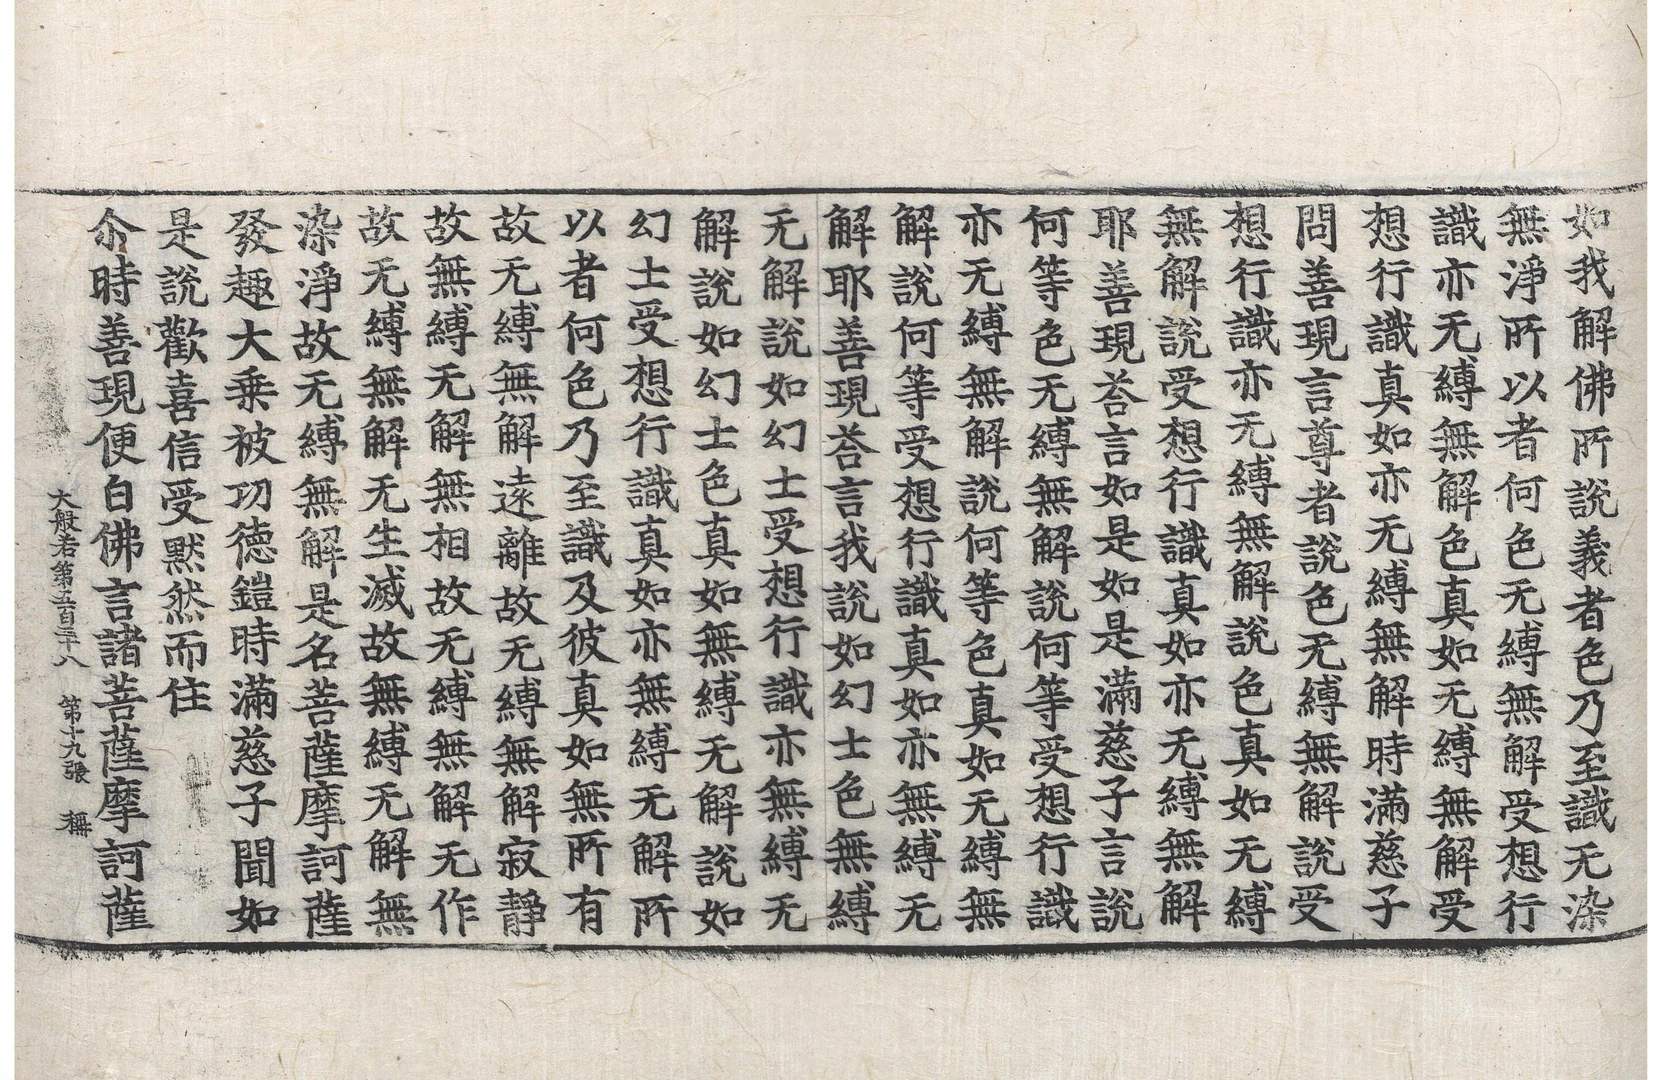 如我解佛所說義者色乃至識无染
無淨所以者何色无縛無解受想行
識亦无縛無解色真如无縛無解受
想行識真如亦无縛無解時滿慈子
問善現言尊者說色无縛無解說受
想行識亦无縛無解說色真如无縛
無解說受想行識真如亦无縛無解
耶善現荅言如是如是滿慈子言說
何等色无縛無解說何等受想行識
亦无縛無解說何等色真如无縛無
解說何等受想行識真如亦無縛无
解耶善現荅言我說如幻士色無縛
无解說如幻士受想行識亦無縛无
解說如幻士色真如無縛无解說如
幻士受想行識真如亦無縛无解所
以者何色乃至識及彼真如無所有
故无縛無解遠離故无縛無解寂靜
故無縛无解無相故无縛無解无作
故无縛無解无生滅故無縛无解無
染淨故无縛無解是名菩薩摩訶薩
發趣大乘被功德鎧時滿慈子聞如
是說歡喜信受默然而住
尒時善現便白佛言諸菩薩摩訶薩
大般若第五百三十八　第十九張　稱